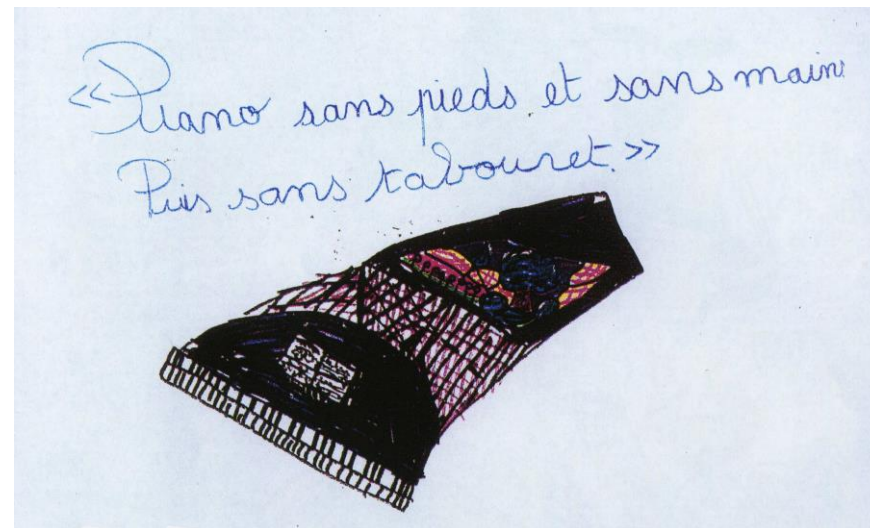 «Piano sans pieds et sans mains
Puis sans tabouret.»